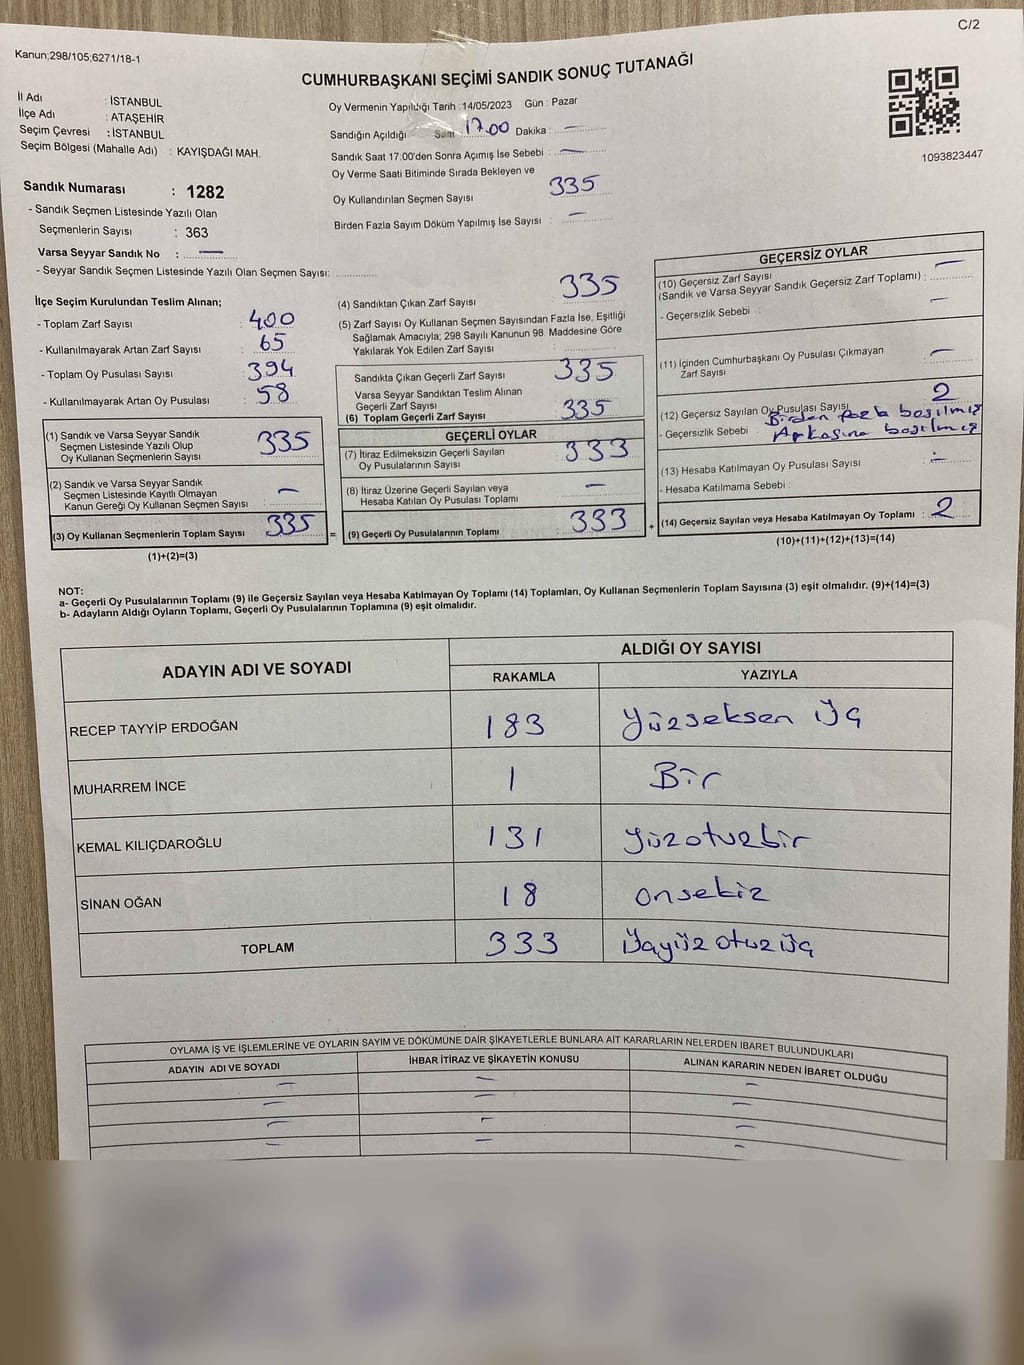 C/2
Kanun;298/105;6271/18-1
CUMHURBAŞKANI SEÇİMİ SANDIK SONUÇ TUTANAĞI
İl Adı : İSTANBUL
İlçe Adı : ATAŞEHİR
Seçim Çevresi : İSTANBUL
Seçim Bölgesi (Mahalle Adı) : KAYIŞDAĞI MAH.
Oy Vermenin Yapıldığı Tarih : 14/05/2023 Gün : Pazar
Sandığın Açıldığı Saat 17.00 Dakika : —
Sandık Saat 17:00'den Sonra Açımış İse Sebebi : —
Oy Verme Saati Bitiminde Sırada Bekleyen ve
Oy Kullandırılan Seçmen Sayısı : 335
Birden Fazla Sayım Döküm Yapılmış İse Sayısı : —
1093823447
Sandık Numarası : 1282
- Sandık Seçmen Listesinde Yazılı Olan
Seçmenlerin Sayısı : 363
Varsa Seyyar Sandık No : —
- Seyyar Sandık Seçmen Listesinde Yazılı Olan Seçmen Sayısı:
İlçe Seçim Kurulundan Teslim Alınan;
- Toplam Zarf Sayısı : 400
- Kullanılmayarak Artan Zarf Sayısı : 65
- Toplam Oy Pusulası Sayısı : 394
- Kullanılmayarak Artan Oy Pusulası : 58
(1) Sandık ve Varsa Seyyar Sandık
Seçmen Listesinde Yazılı Olup
Oy Kullanan Seçmenlerin Sayısı : 335
(2) Sandık ve Varsa Seyyar Sandık
Seçmen Listesinde Kayıtlı Olmayan
Kanun Gereği Oy Kullanan Seçmen Sayısı : —
(3) Oy Kullanan Seçmenlerin Toplam Sayısı : 335
(1)+(2)=(3)
(4) Sandıktan Çıkan Zarf Sayısı : 335
(5) Zarf Sayısı Oy Kullanan Seçmen Sayısından Fazla İse, Eşitliği
Sağlamak Amacıyla; 298 Sayılı Kanunun 98. Maddesine Göre
Yakılarak Yok Edilen Zarf Sayısı :
Sandıkta Çıkan Geçerli Zarf Sayısı : 335
Varsa Seyyar Sandıktan Teslim Alınan
Geçerli Zarf Sayısı
(6) Toplam Geçerli Zarf Sayısı : 335
GEÇERLİ OYLAR
(7) İtiraz Edilmeksizin Geçerli Sayılan
Oy Pusulalarının Sayısı : 333
(8) İtiraz Üzerine Geçerli Sayılan veya
Hesaba Katılan Oy Pusulası Toplamı : —
= (9) Geçerli Oy Pusulalarının Toplamı : 333 +
GEÇERSİZ OYLAR
(10) Geçersiz Zarf Sayısı
(Sandık ve Varsa Seyyar Sandık Geçersiz Zarf Toplamı) : —
- Geçersizlik Sebebi : —
(11) İçinden Cumhurbaşkanı Oy Pusulası Çıkmayan
Zarf Sayısı : —
(12) Geçersiz Sayılan Oy Pusulası Sayısı 2
Birden fazla basılmış
- Geçersizlik Sebebi : Arkasına basılmış
(13) Hesaba Katılmayan Oy Pusulası Sayısı : —
- Hesaba Katılmama Sebebi :
(14) Geçersiz Sayılan veya Hesaba Katılmayan Oy Toplamı : 2
(10)+(11)+(12)+(13)=(14)
NOT:
a- Geçerli Oy Pusulalarının Toplamı (9) ile Geçersiz Sayılan veya Hesaba Katılmayan Oy Toplamı (14) Toplamları, Oy Kullanan Seçmenlerin Toplam Sayısına (3) eşit olmalıdır. (9)+(14)=(3)
b- Adayların Aldığı Oyların Toplamı, Geçerli Oy Pusulalarının Toplamına (9) eşit olmalıdır.
ADAYIN ADI VE SOYADI ALDIĞI OY SAYISI
RAKAMLA YAZIYLA
RECEP TAYYİP ERDOĞAN 183 Yüzseksen Üç
MUHARREM İNCE 1 Bir
KEMAL KILIÇDAROĞLU 131 Yüzotuzbir
SİNAN OĞAN 18 Onsekiz
TOPLAM 333 Üçyüz otuz üç
OYLAMA İŞ VE İŞLEMLERİNE VE OYLARIN SAYIM VE DÖKÜMÜNE DAİR ŞİKAYETLERLE BUNLARA AİT KARARLARIN NELERDEN İBARET BULUNDUKLARI
ADAYIN ADI VE SOYADI İHBAR İTİRAZ VE ŞİKAYETİN KONUSU ALINAN KARARIN NEDEN İBARET OLDUĞU
— — —
— — —
— — —
— — —